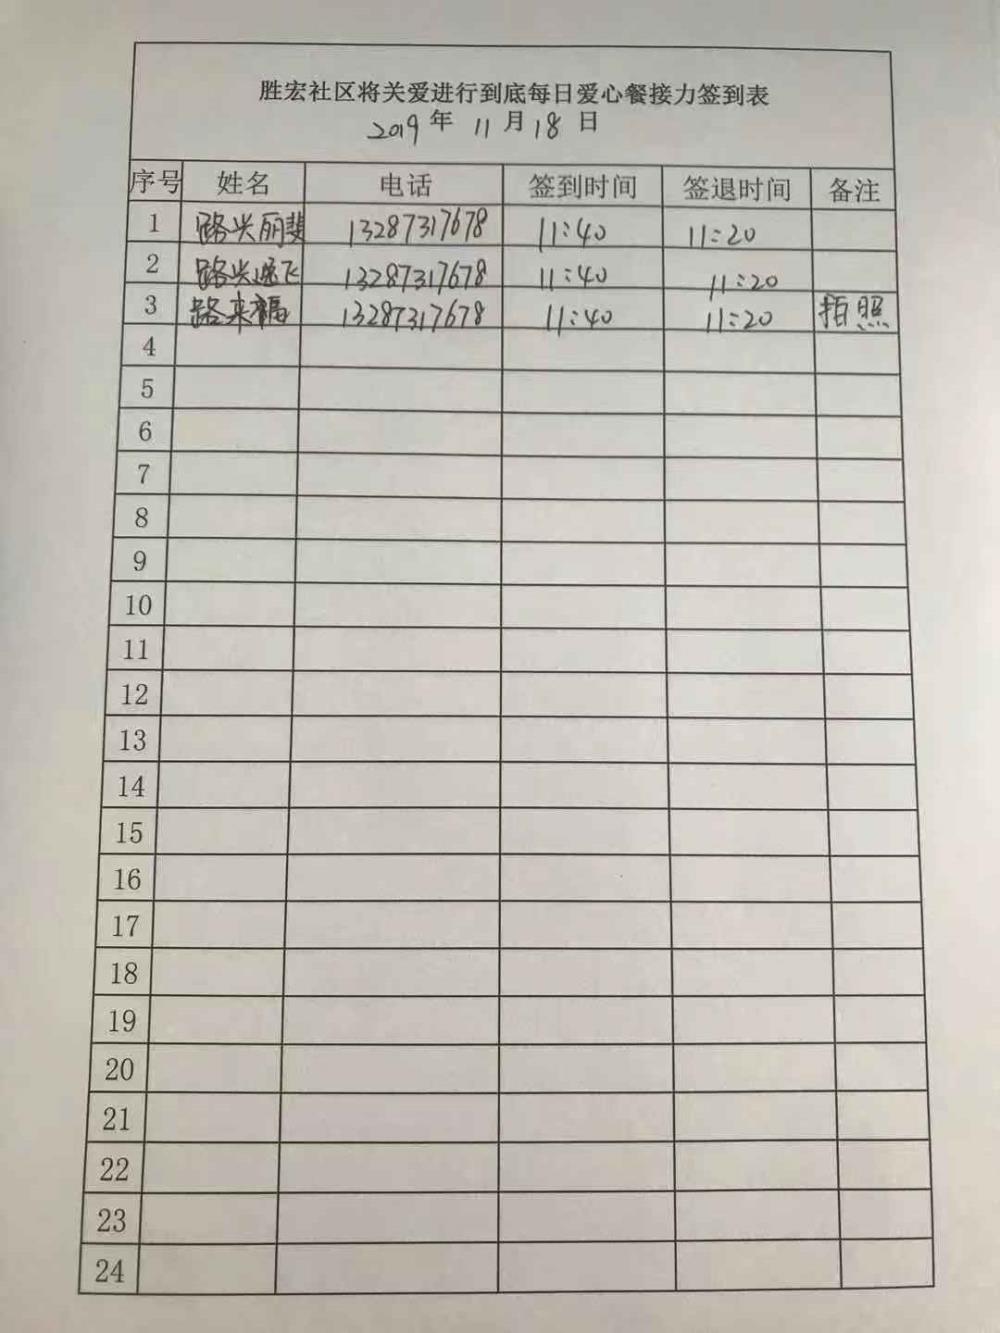 胜宏社区将关爱进行到底每日爱心餐接力签到表
2019年 11月18日
序号 姓名 电话 签到时间 签退时间 备注
1 路兴丽斐 13287317678 11:40 11:20
2 路兴通飞 13287317678 11:40 11:20
3 路来福 13287317678 11:40 11:20 拍照
4
5
6
7
8
9
10
11
12
13
14
15
16
17
18
19
20
21
22
23
24